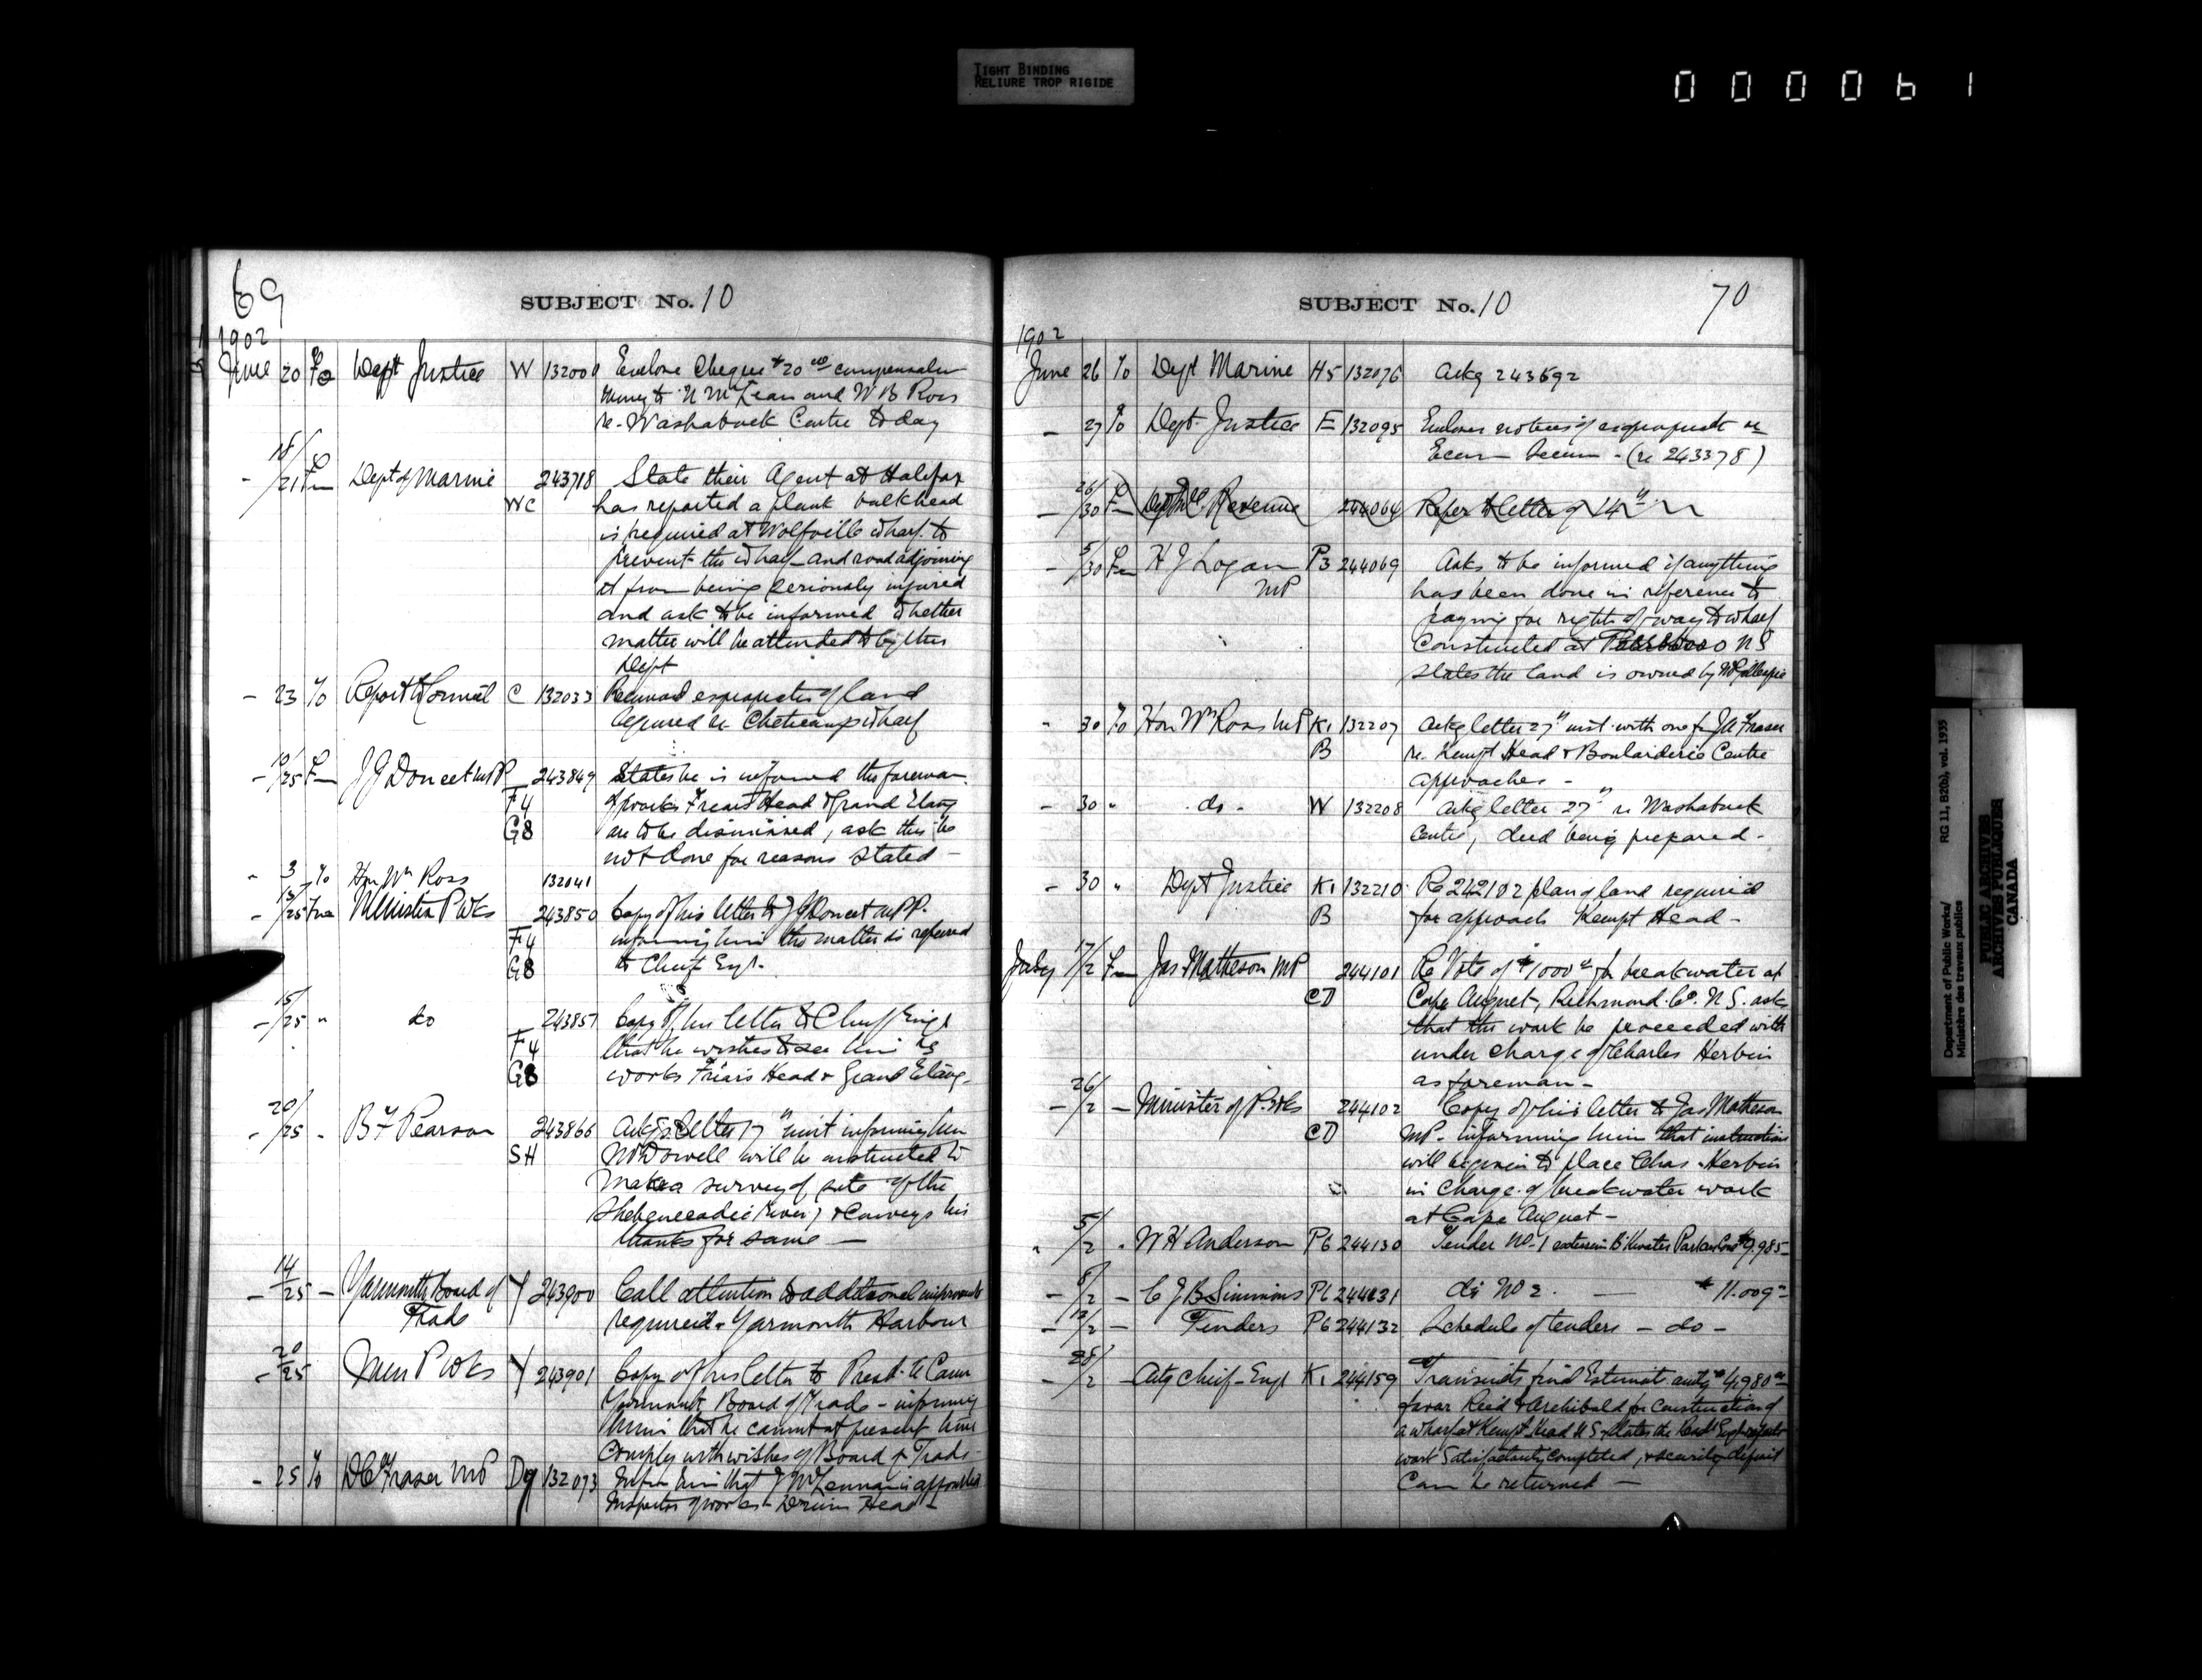 TIGHT BINDING
RELIURE TROP RIGIDE
000061
69
SUBJECT No. 10
1902
June 20 To Dept Justice W 132001 Enclose Cheque $20.00 compensation
money to N McLean and W B Ross
re. Washabuck Centre today
18/21 Fm Dept of Marine 243718 State their Agent at Halifax
WC has reported a plank bulkhead
is required at Wolfville wharf to
prevent the wharf and road adjoining
it from being seriously injured
and ask to be informed whether
matter will be attended to by this
Dept
- 23 To Report to Council C 132033 Recommend expropriation of land
required re Cheticamp wharf
- 10/25 Fm J J Doucet MPP 243849 States he is informed the foreman
F4 of works Friars Head & Grand Etang
G8 are to be dismissed, ask this be
not done for reasons stated -
- 3 To Hon Wm Ross 132041
- 13/25 Fm Minister P Wks 243850 Copy of his letter to J J Doucet MPP.
F4 informing him the matter is referred
G8 to Chief Engr.
- 15/25 " do 243851 Copy of his letter to Chief Engr
F4 that he wishes to see him re
G8 works Friars Head & Grand Etang -
- 20/25 - B F Pearson 243866 Ackgs letter 17th inst informing him
SH McDowell will be instructed to
make a survey of site of the
Shebenecadie River, & conveys his
thanks for same -
- 14/25 - Yarmouth Board of Y 243900 Call attention to additional improvements
Trade required - Yarmouth Harbour
- 20/25 Min P Wks Y 243901 Copy of his letter to Presdt Cann
Yarmouth Board of Trade - informing
him that he cannot at present time
comply with wishes of Board of Trade -
- 25 To D C Fraser MP Dy 132073 Inform him that J McLennan is appointed
Inspector of works - Drum Head -
SUBJECT No. 10
70
1902
June 26 To Dept Marine H5 132076 Ackg 243692
- 27 To Dept Justice E 132095 Enclose notices of expropriation re
Ecum Secum - (re 243378)
- 26/30 Fm Dept Revenue 244064 Refer to letter of 14th
- 5/30 Fm H J Logan P3 244069 Asks to be informed if anything
MP has been done in reference to
paying for right of way to wharf
constructed at NS
states the land is owned by Mr Gillespie
- 30 To Hon Wm Ross MP K1 132207 Ackg letter 27th inst. with one fm J A Fraser
B re. Kempt Head & Boulardarie Centre
approaches -
- 30 " do - W 132208 Ackg letter 27th re Washabuck
Centre, deed being prepared -
- 30 " Dept Justice K1 132210 Re 242102 plan of land required
B for approach Kempt Head -
July 17/2 Fm Jas Matheson MP 244101 Re Vote of $1000.00 for breakwater at
CD Cape Auguet, Richmond Co. N.S. ask
that the work be proceeded with
under charge of Charles Herbin
as foreman -
- 26/2 - Minister of P. Wks 244102 Copy of his letter to Jas Matheson
CD MP - informing him that instructions
will be given to place Chas. Herbin
in charge of breakwater work
at Cape Auguet -
" 5/2 " W H Anderson P6 244130 Tender No. 1 extension B'kwater Parkers Cove $9.985
- 8/2 - C J B Simmins P6 244131 do No 2. - $11.009
- 12/2 - Tenders P6 244132 Schedule of tenders - do -
- 28/2 - Actg Chief Engr K1 244159 Transmits final Estimate amtg $4,980
favor Reid & Archibald for construction of
a wharf at Kempt Head N.S. States the Resdt Engr reports
work satisfactorily completed, & security deposit
can be returned -
Department of Public Works/ RG 11, B2(b), vol. 1935
Ministère des travaux publics
PUBLIC ARCHIVES
ARCHIVES PUBLIQUES
CANADA